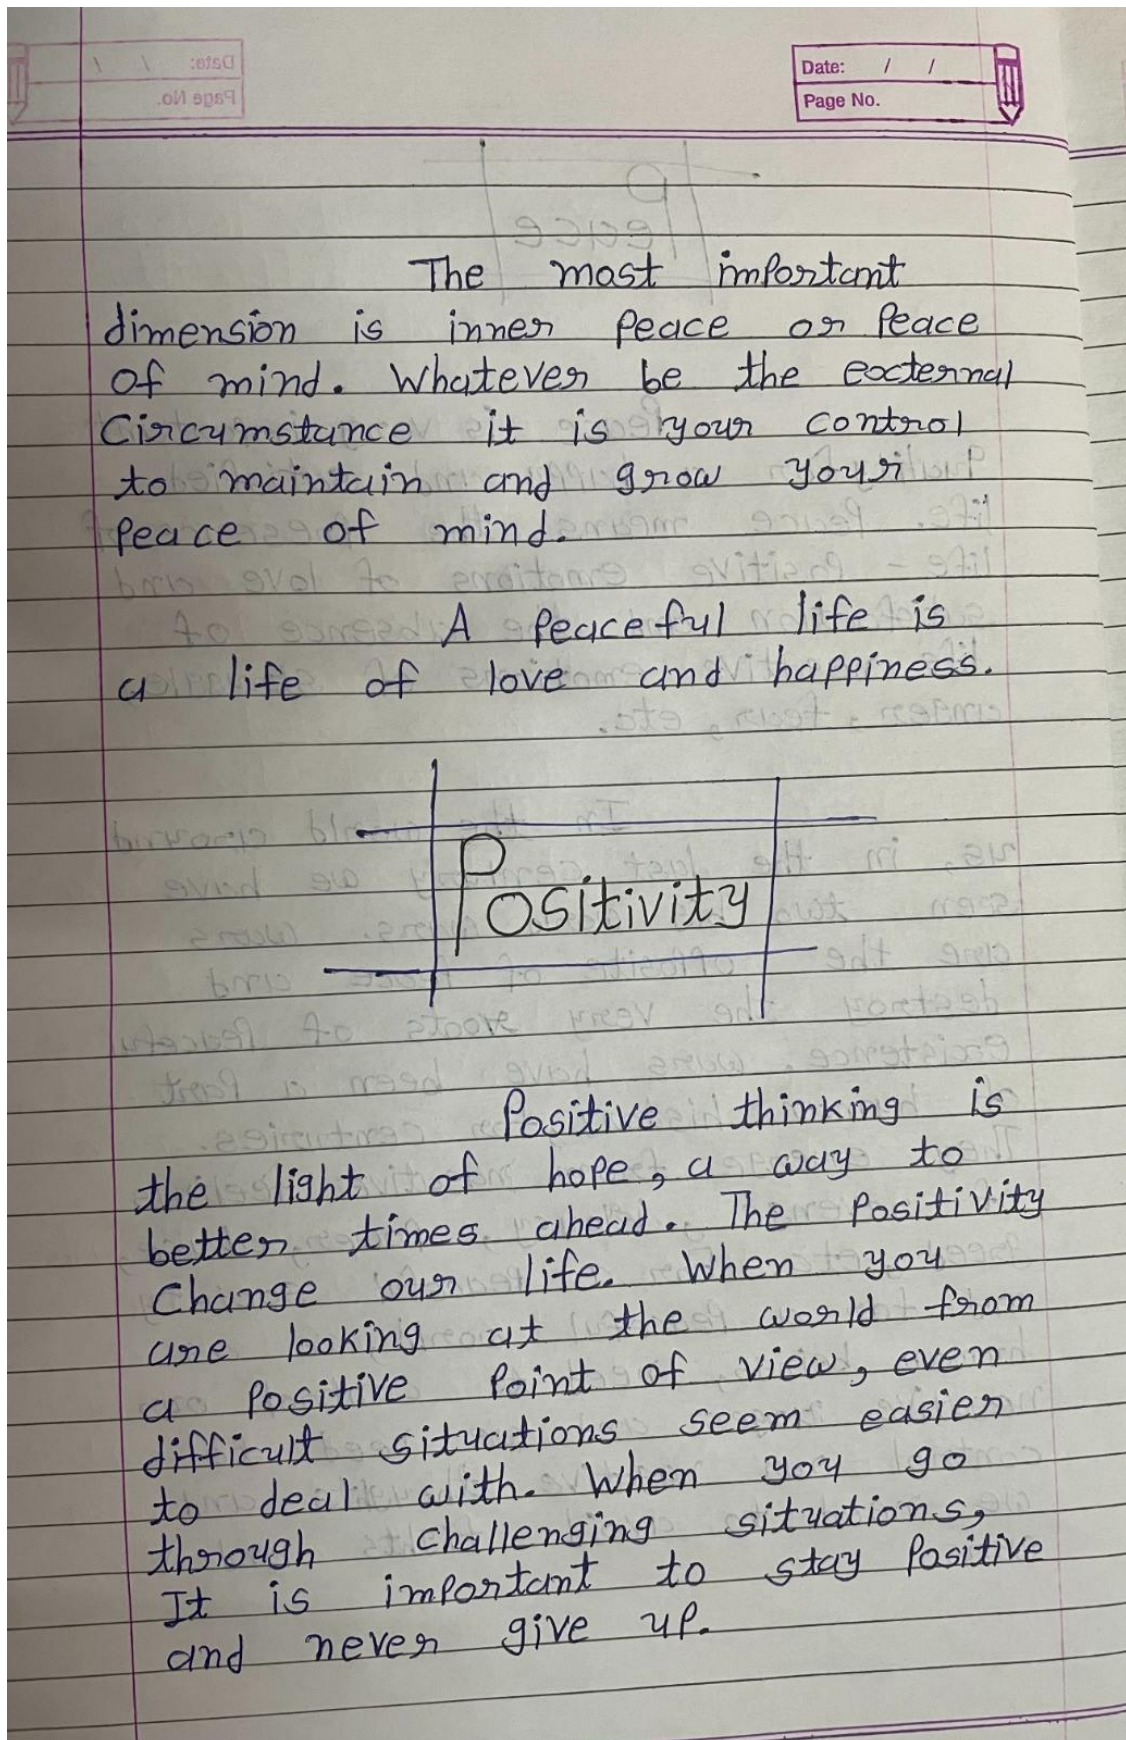 Date: / /
Page No.
The most important
dimension is inner Peace or Peace
of mind. Whatever be the external
Circumstance it is your control
to maintain and grow your
Peace of mind.
A Peaceful life is
a life of love and happiness.
Positivity
Positive thinking is
the light of hope, a way to
better times ahead. The Positivity
Change our life. When you
are looking at the world from
a Positive Point of view, even
difficult situations seem easier
to deal with. When you go
through challenging situations,
It is important to stay Positive
and never give up.